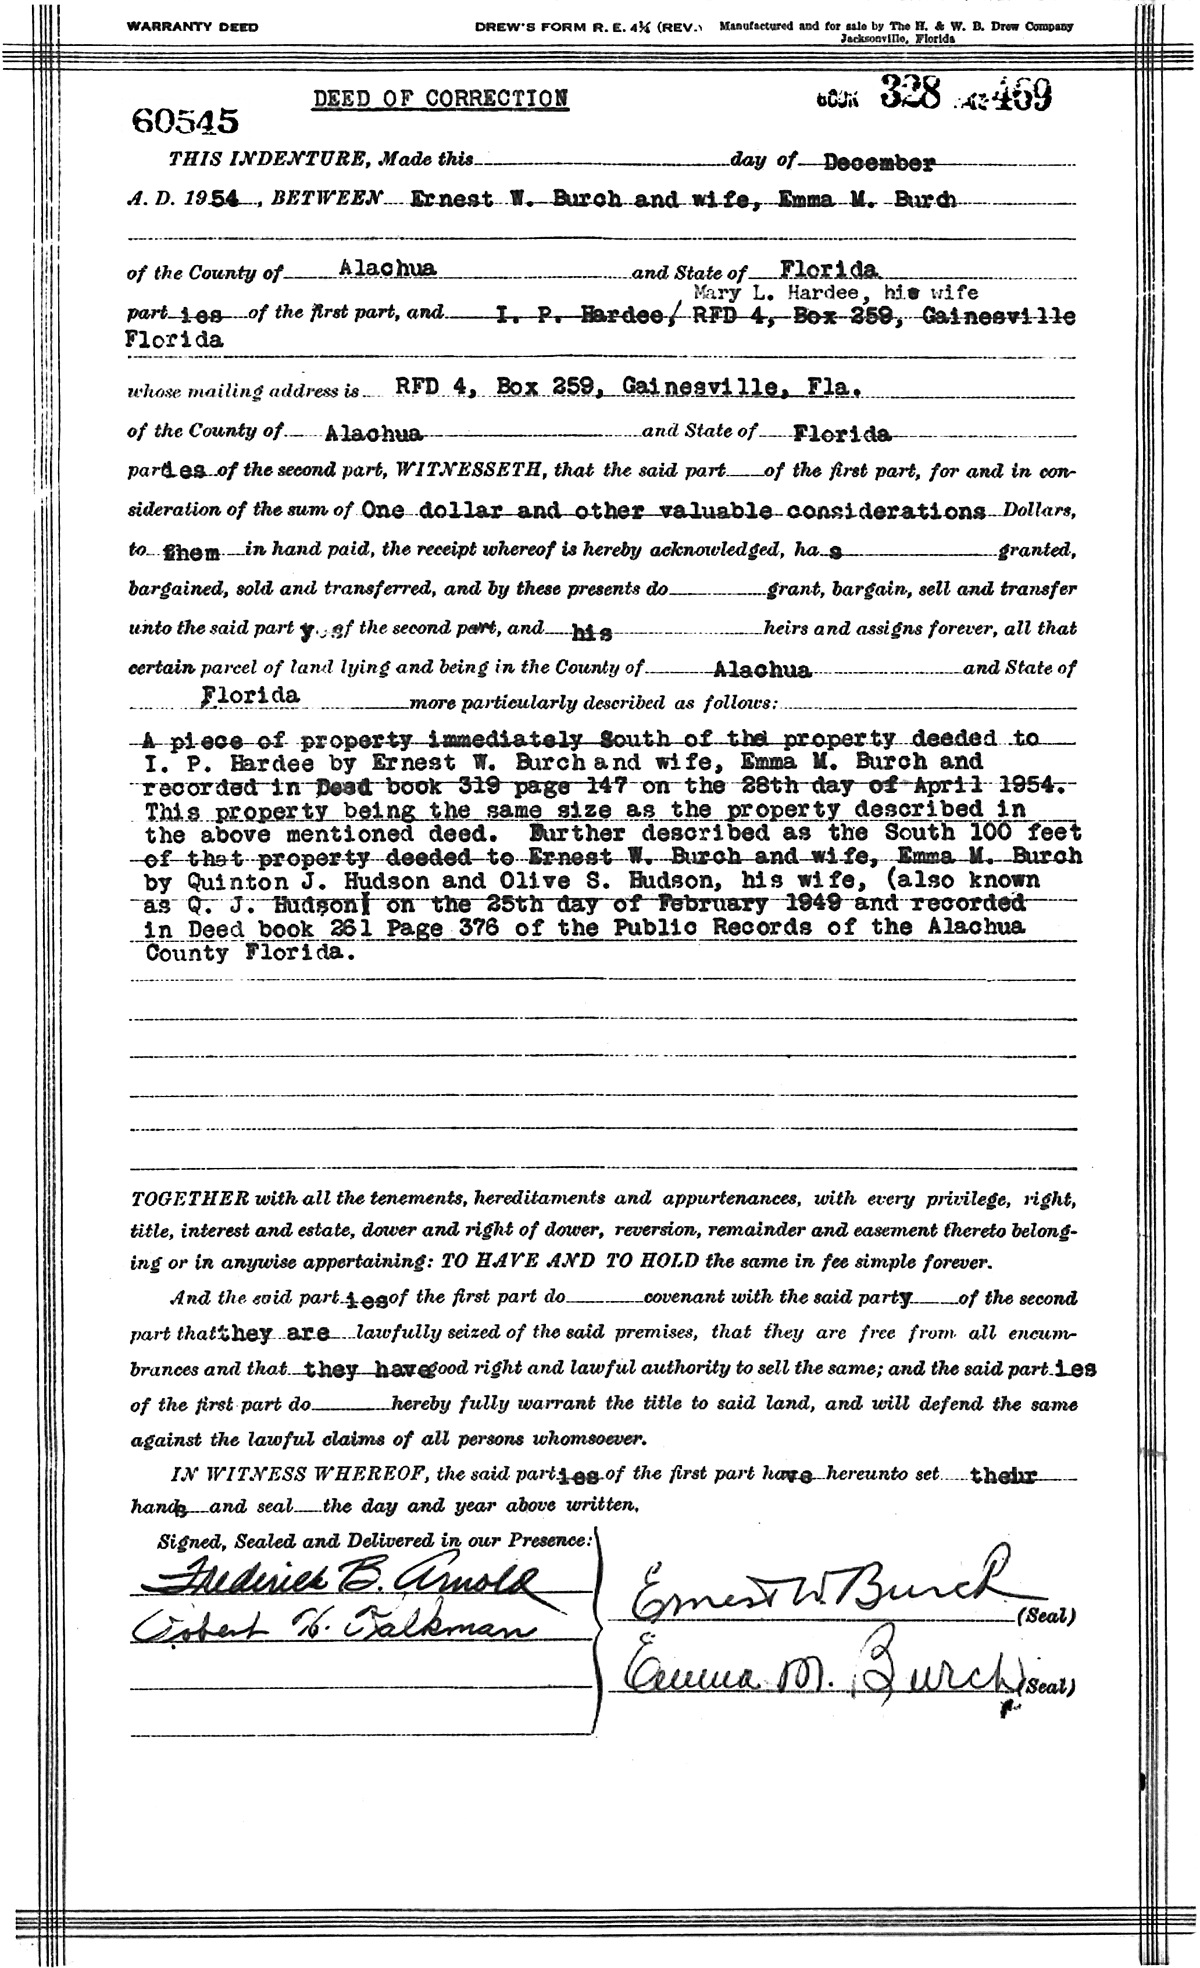 WARRANTY DEED DREW'S FORM R. E. 4½ (REV.) Manufactured and for sale by The H. & W. B. Drew Company
Jacksonville, Florida
DEED OF CORRECTION BOOK 328 PAGE 469
60545
THIS INDENTURE, Made this day of December
A. D. 1954, BETWEEN Ernest W. Burch and wife, Emma M. Burch
of the County of Alachua and State of Florida
Mary L. Hardee, his wife
parties of the first part, and I. P. Hardee/ RFD 4, Box 259, Gainesville
Florida
whose mailing address is RFD 4, Box 259, Gainesville, Fla.
of the County of Alachua and State of Florida
parties of the second part, WITNESSETH, that the said part of the first part, for and in con-
sideration of the sum of One dollar and other valuable considerations Dollars,
to them in hand paid, the receipt whereof is hereby acknowledged, has granted,
bargained, sold and transferred, and by these presents do grant, bargain, sell and transfer
unto the said party of the second part, and his heirs and assigns forever, all that
certain parcel of land lying and being in the County of Alachua and State of
Florida more particularly described as follows:
A piece of property immediately South of the property deeded to
I. P. Hardee by Ernest W. Burch and wife, Emma M. Burch and
recorded in Deed book 319 page 147 on the 28th day of April 1954.
This property being the same size as the property described in
the above mentioned deed. Further described as the South 100 feet
of that property deeded to Ernest W. Burch and wife, Emma M. Burch
by Quinton J. Hudson and Olive S. Hudson, his wife, (also known
as Q. J. Hudson) on the 25th day of February 1949 and recorded
in Deed book 261 Page 376 of the Public Records of the Alachua
County Florida.
TOGETHER with all the tenements, hereditaments and appurtenances, with every privilege, right,
title, interest and estate, dower and right of dower, reversion, remainder and easement thereto belong-
ing or in anywise appertaining: TO HAVE AND TO HOLD the same in fee simple forever.
And the said parties of the first part do covenant with the said party of the second
part that they are lawfully seized of the said premises, that they are free from all encum-
brances and that they have good right and lawful authority to sell the same; and the said parties
of the first part do hereby fully warrant the title to said land, and will defend the same
against the lawful claims of all persons whomsoever.
IN WITNESS WHEREOF, the said parties of the first part have hereunto set their
hands and seal the day and year above written.
Signed, Sealed and Delivered in our Presence:
Frederick B. Arnold
Ernest W. Burch (Seal)
Robert H. Falkman
Emma M. Burch (Seal)